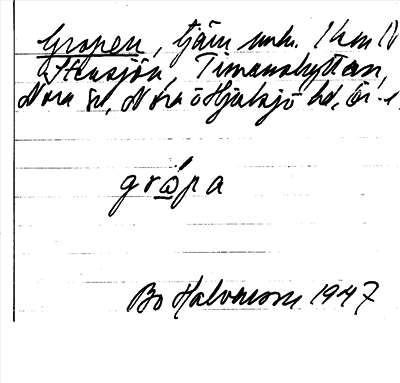 Gropen, tjärn omkr. 1 km N
Stensjön, Timanshyttan,
Nora sn, Nora o Hjulsjö hd, Ör.
gropa
Bo Halvarson 1947